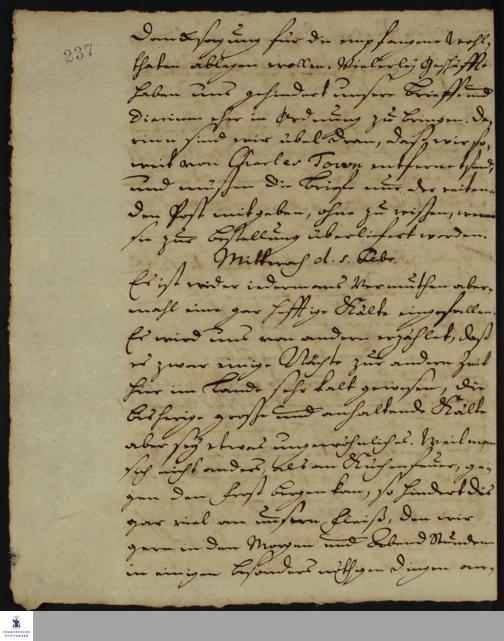 237
Danksagung für die empfangene Wohl-
thaten ablegen wollen. Vielerley Geschäffte
haben uns gehindert unsere Brieffe und
Diarium eher in Ordnung zu bringen. Da-
rinn sind wir übel dran, daß wir so
weit von Charles Town entfernet sind,
und müßen die Briefe nur der reiten-
den Post mitgeben, ohne zu wißen, wenn
sie zur Bestellung überliefert worden.
Mittwoch d. 5. Febr.
Es ist wider iedermans Vermuthen aber-
mahl eine gar hefftige Kälte eingefallen.
Es wird uns von andern erzählet, daß
es zwar einige Nächte zur andern Zeit
hier im Lande sehr kalt gewesen, die
bisherige große und anhaltende Kälte
aber sey etwas ungewöhnliches. Weil man
sich nicht anders, als am Küchenfeuer, ge-
gen den Frost bergen kan, so hindert dis
gar viel an unserm Fleiß, den wir
gern in den Morgen und Abend Stunden
in einigen besonders nöthigen Dingen an-
FRANCKESCHE
STIFTUNGEN